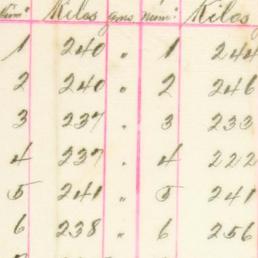 Núm° Kilos gms Núm° Kilos
1 240 " 1 244
2 240 " 2 246
3 237 " 3 233
4 237 " 4 222
5 241 " 5 241
6 238 " 6 256